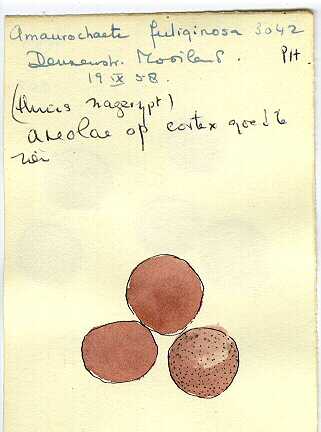 Amaurochaete fuliginosa 3042
Dennenstr. Mooiland. PH.
19 IX 58.
(thuis nagerijpt)
areolae op cortex goed te
zien